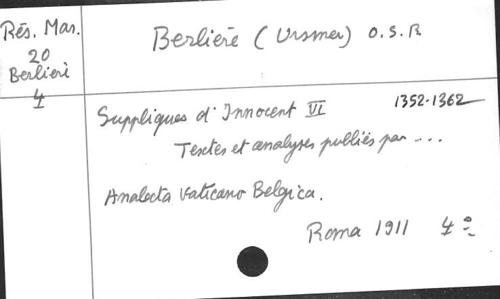 Rés. Mas.
20
Berlierè
4
Berlierè (Ursmer) O.S.B
Suppliques d'Innocent VI 1352-1362
Textes et analyses publiés par ...
Analecta Vaticano Belgica.
Roma 1911 4°